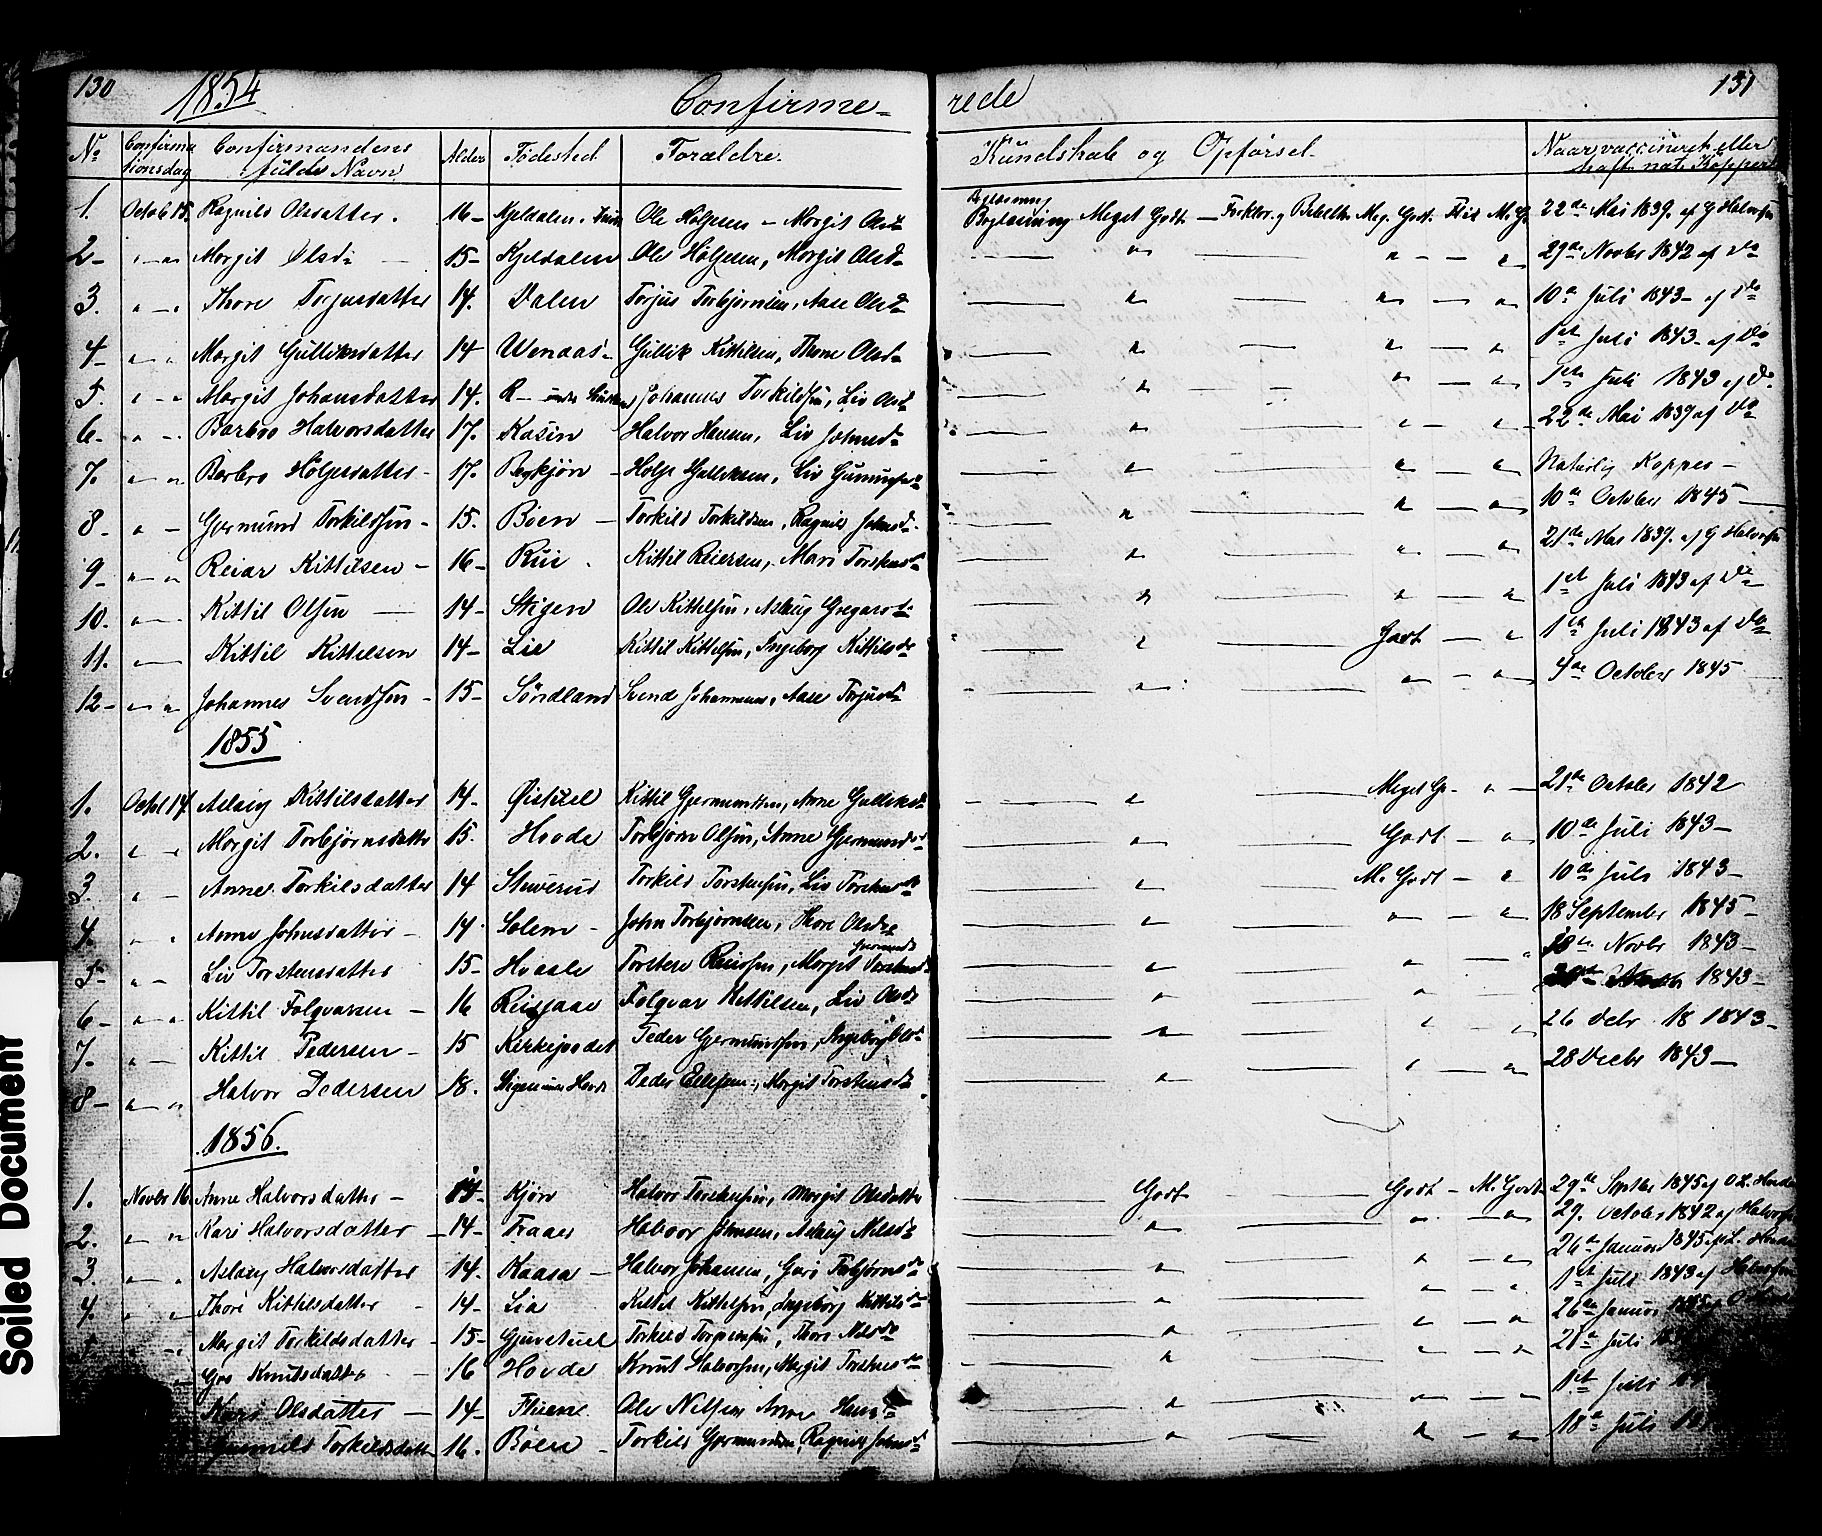 130 1854 Confirme-
rede 131
No Confirma tionsdag Confirmandens fulde Navn Alder Fødested Forældre. Kundskab og Opførsel. Naar vaccineret eller havt nat. Kopper
1. Octob 15. Ragnild Olsdatter. 16- Kjeldalen. Ole Holjesen - Margit Olsd Meget Godt - Meg. Godt. Flid M. G. 22de Mai 1839. af G Halvorsen
2- " - " Margit Olsd 15- Kjeldalen Ole Holjesen, Margit Olsd " " " 29de Novbr 1842 af Do
3. " - " Thore Torjusdatter 14. Dalen Torjus Torbjørnsen, Aase Olsd " " " 10de Juli 1843- af Do
4- " " Margit Gulliksdatter 14 Wenaas- Gullik Kittilsen, Thore Olsd " " " 1ste Juli 1843- af Do
5. " - " Margit Johansdatter 14. Johannes Torkildsen, Liv Olsd " " " 1ste Juli 1843 af Do
6- " - Barbro Halvorsdatter 17. Kasin Halvor Hansen, Liv Johnsd " " " 22de Mai 1839 af Do
7. " - " Barbro Holjesdatter- 17. Holje Gulliksen, Liv " " " Naturlig Kopper-
8- " - Germund Torkildsen- 15. Bøen - Torkild Torkildsen, Ragnild Johnsd. " " " 10de October 1845
9- " - " Reiar Kittilsen- 16- Rui. Kittil Reiersen, Mari Torstensd " " " 21de Mai 1839. af G Halvorsen
10. " - Kittil Olsen 14- Stigen Ole Kittelsen, Aslaug Gregarsd " " " 1ste Juli 1843 af Do
11. " Kittil Kittelsen 14- Lie Kittil Kittelsen, Ingeborg Kittilsd " Godt - " 1ste Juli 1843 af Do
12- " " Johannes Svendsen- 15- Søndland Svend Johannesen, Aase Torjusd " " " October 1845
1855
1. Octbr 14. Aslaug Kittilsdatter 14- Kittil Germundsen, Anne Gulliksd " Meget G- " 21de October 1842
2. " " Margit Torbjørnsdatter 15. Hovde Torbjørn Olsen, Anne Germundsd " Godt - " 10de Juli 1843-
3. " - Anne Torkilsdatter 14 Torkild Torstensen, Liv Torstensd " M. Godt - " 10de Juli 1843-
4. " " Anne Johnsdatter- 14. Solem - John Torbjørnsen, Thore Olsdtr " " " 18 September 1845-
5- " - Liv Torstensdatter 15- Hvaale Torsten Reiersen, Margit Germunds " " " Novbr 1843-
6- " " Kittil Folqvarsen - 16 Reisjaae Folqvar Kittilsen, Liv Olsd " " " 1843-
7- " - Kittil Pedersen- 15 Kirkejordet Peder Germundsen, Ingeborg Olsd " " " 26 Debr 18 1843-
8- " " Halvor Pedersen 18. Peder Ellefsen, Margit Torstensd " " " 28 Decbr 1843-
1856.
1. Novbr 16. Anne Halvorsdatter - Kjøn Halvor Torstensen, Margit Olsdatter Godt Godt - M. Godt 29de Septbr 1845 af
2. " " Kari Halvorsdatter 14- Traaer Halvor Johnsen, Aslaug Nilsd " " " 29. October 1842 af Halvorsen
3 " " Aslaug Halvorsdatter 14. Kaasa - Halvor Johansen, Guri Torbjørnsd " " " 26de Januar 1845 af
4. " " Thore Kittilsdatter - 14- Lia Kittil Kittelsen, Ingeborg Kittilsd " " " 1ste Juli 1843 af Halvorsen
5 " " Margit Torkildsdatter - 15- Torkild Thore Nilsd " " " 26de Januar
Gro Knutsdatter 16 Hovde Knut Halvorsen, Margit Torstensd " " " Juli
Kari Olsdatter 14- Ole Nilsen Anne Hansd " " " 1ste Juli
Torkildsdatter 16. Bøen - Torkild Germundsen, Ragnild Johnsd " " " 18de Juli
Soiled Document